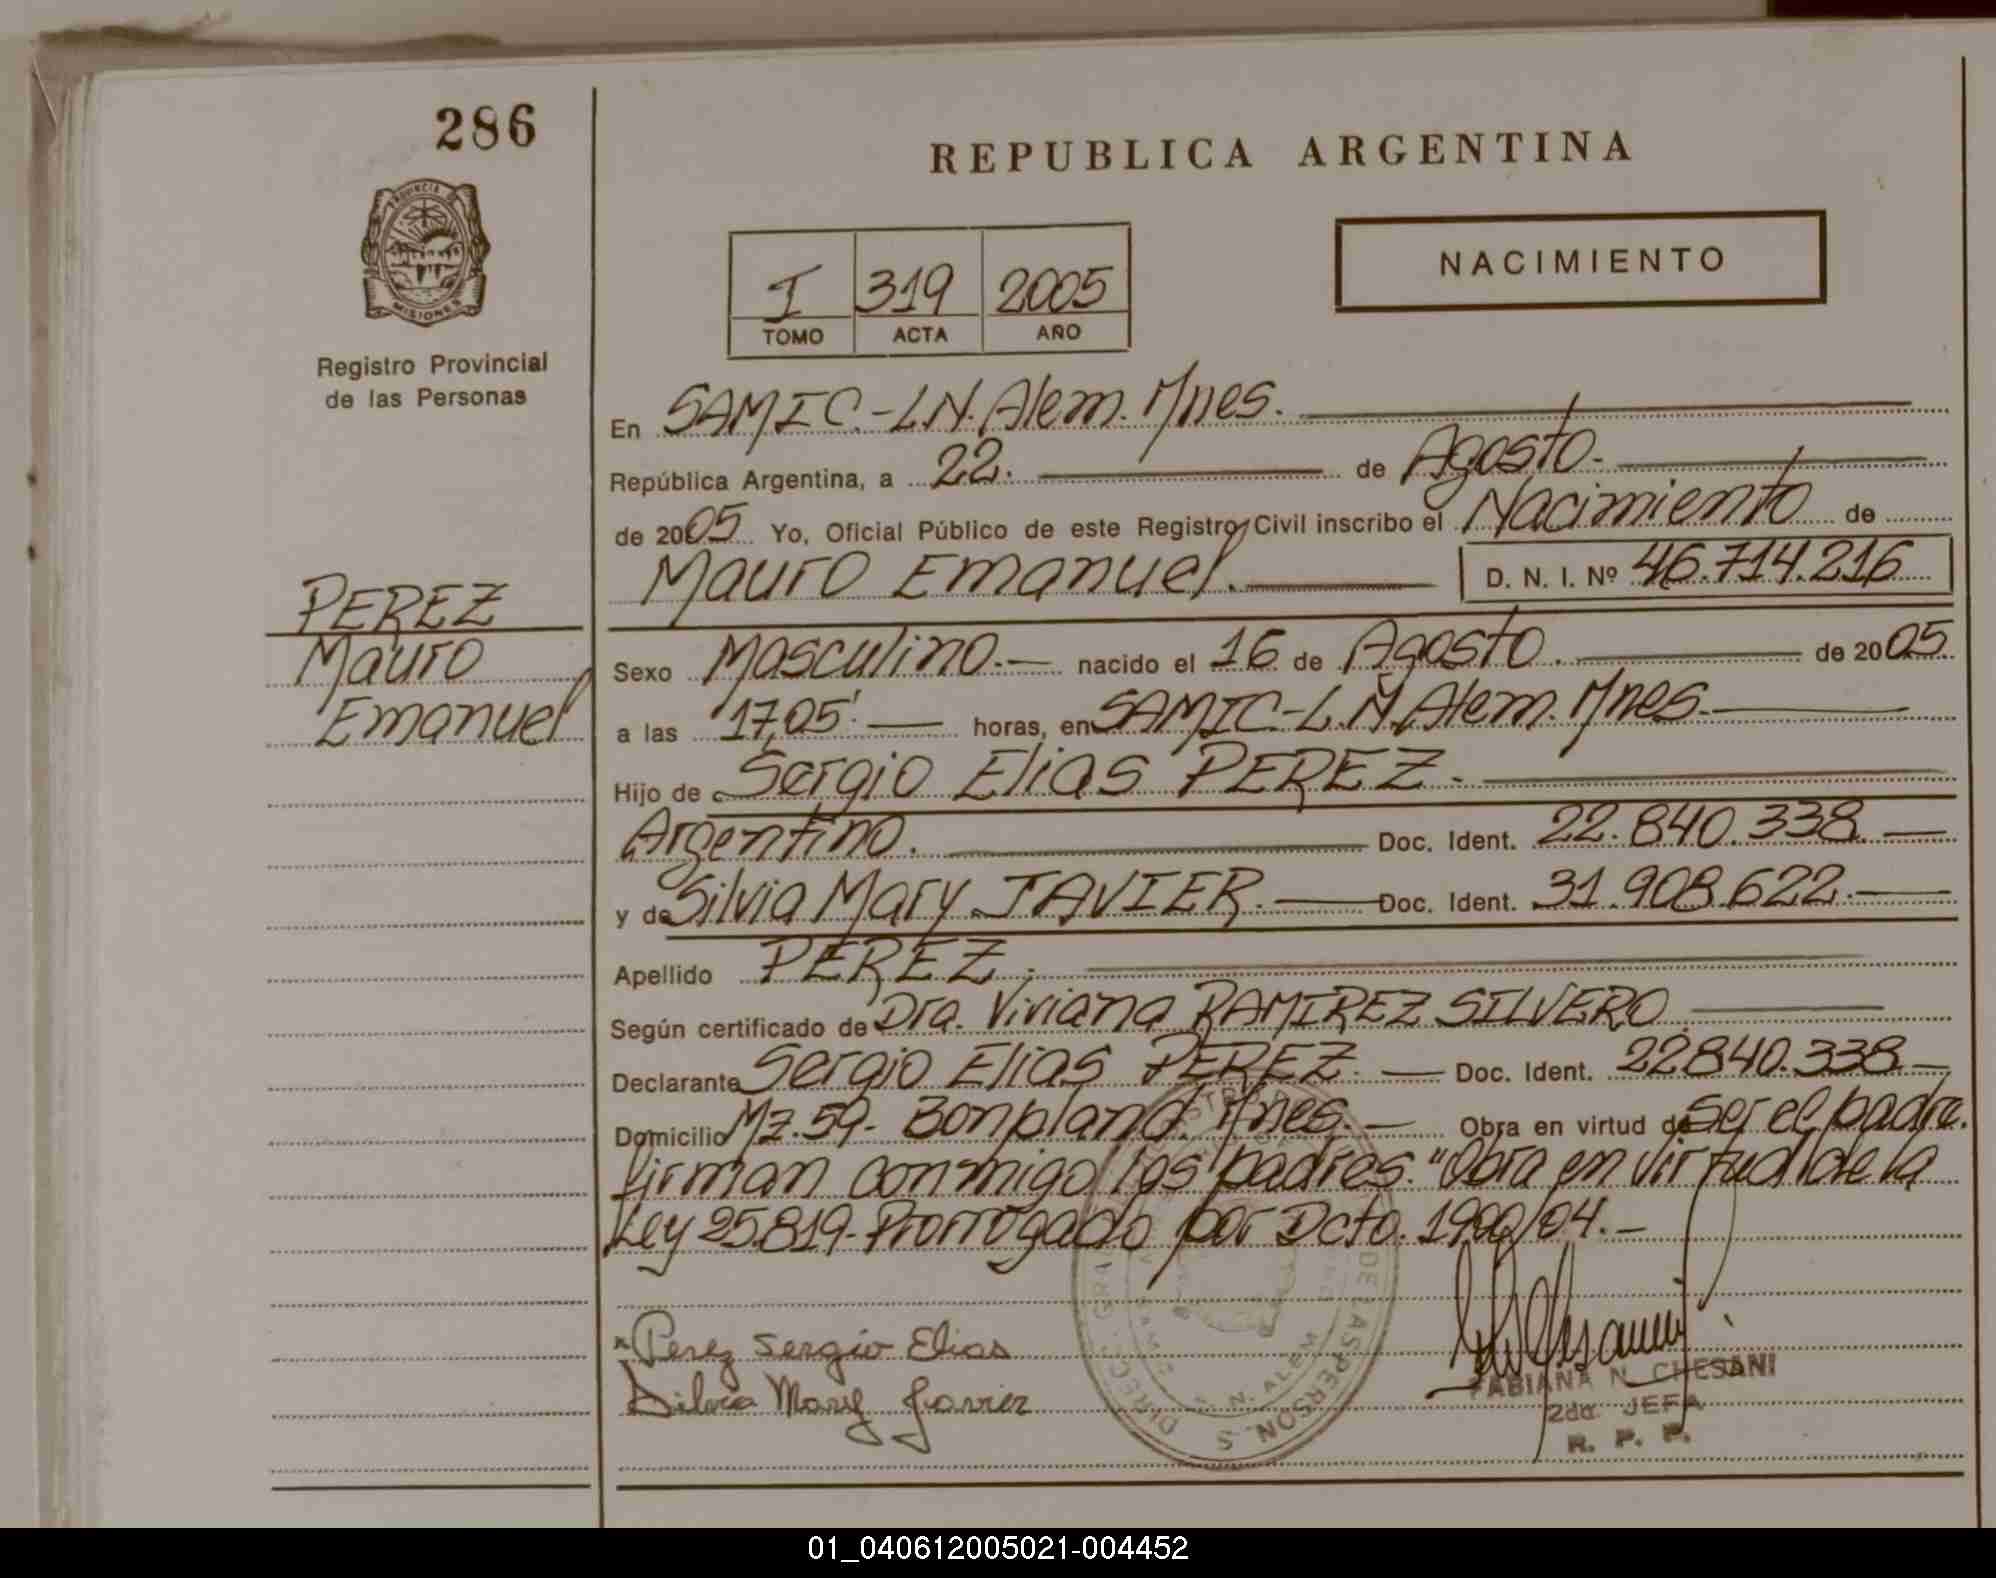 286
REPUBLICA ARGENTINA
PROVINCIA DE
MISIONES
Registro Provincial
de las Personas
I 319 2005
TOMO ACTA AÑO
NACIMIENTO
En SAMIC.-L.N. Alem. Mnes.
República Argentina, a 22. de Agosto.
de 2005 Yo, Oficial Público de este Registro Civil inscribo el Nacimiento de
Mauro Emanuel. D. N. I. Nº 46.714.216
PEREZ
Mauro
Emanuel
Sexo Masculino.- nacido el 16 de Agosto. de 2005
a las 17,05'. horas, en SAMIC-L.N. Alem. Mnes.
Hijo de Sergio Elias PEREZ.
Argentino. Doc. Ident. 22.840.338
y de Silvia Mary JAVIER. Doc. Ident. 31.908.622.
Apellido PEREZ.
Según certificado de Dra. Viviana RAMIREZ SILVERO
Declarante Sergio Elias PEREZ. Doc. Ident. 22840.338
Domicilio Mz.59- Bonpland. Mnes. Obra en virtud de ser el padre.
firman conmigo los padres. "Obra en virtud de la
Ley 25819-Prorrogado por Dcto. 1900/04.-
Perez Sergio Elias
Silvia Mary Javier
FABIANA N. CHESANI
2da. JEFA
R. P. P.
N. ALEM
01_040612005021-004452